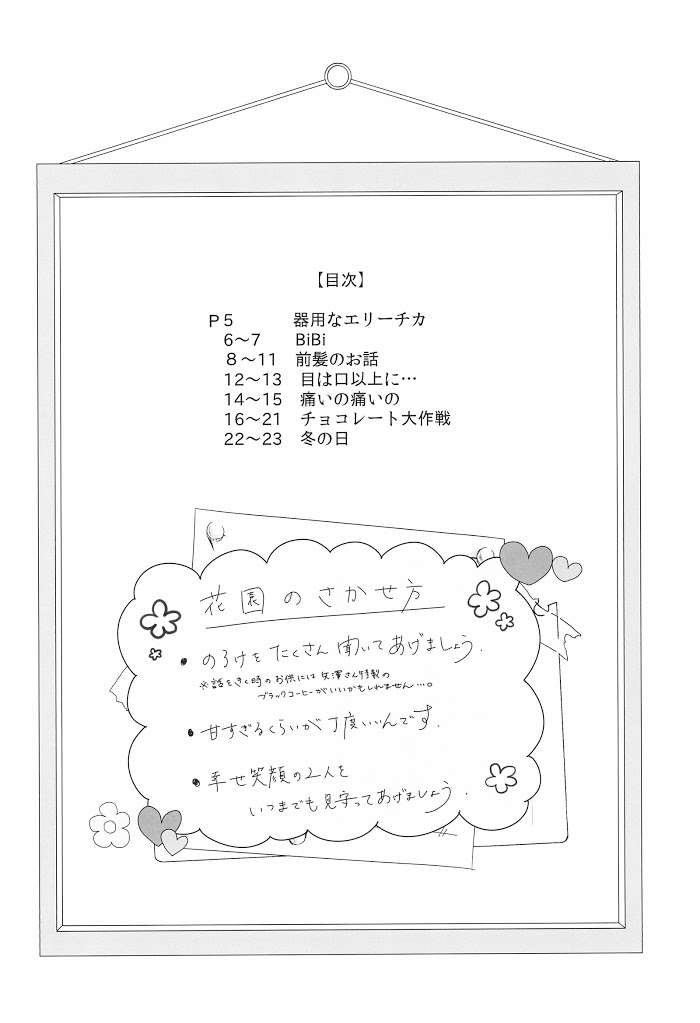 【目次】
P5 器用なエリーチカ
6～7 BiBi
8～11 前髪のお話
12～13 目は口以上に…
14～15 痛いの痛いの
16～21 チョコレート大作戦
22～23 冬の日
花園のさかせ方
• のろけをたくさん聞いてあげましょう.
※話をきく時のお供には矢澤さん特製の
ブラックコーヒーがいいかもしれません…。
• 甘すぎるくらいが丁度いいんです.
• 幸せ笑顔の2人を
いつまでも見守ってあげましょう.